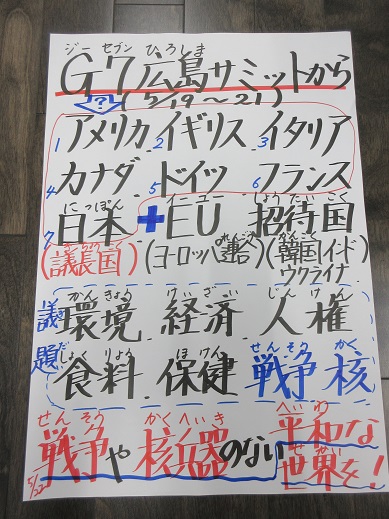 ジー セブン ひろしま
G7広島サミットから
？(5/19～21)
1アメリカ 2イギリス 3イタリア
4カナダ 5ドイツ 6フランス
にっぽん イーユー しょうたいこく
7日本+EU 招待国
ぎちょうこく かんこく
(議長国)(ヨーロッパ連合)(韓国インド
ウクライナ
かんきょう けいざい じんけん
議題 環境 経済 人権
しょくりょう ほけん せんそう かく
食料 保健 戦争 核
せんそう かくへいき へいわ
戦争や核兵器のない平和な
せかい
世界を!
5/22